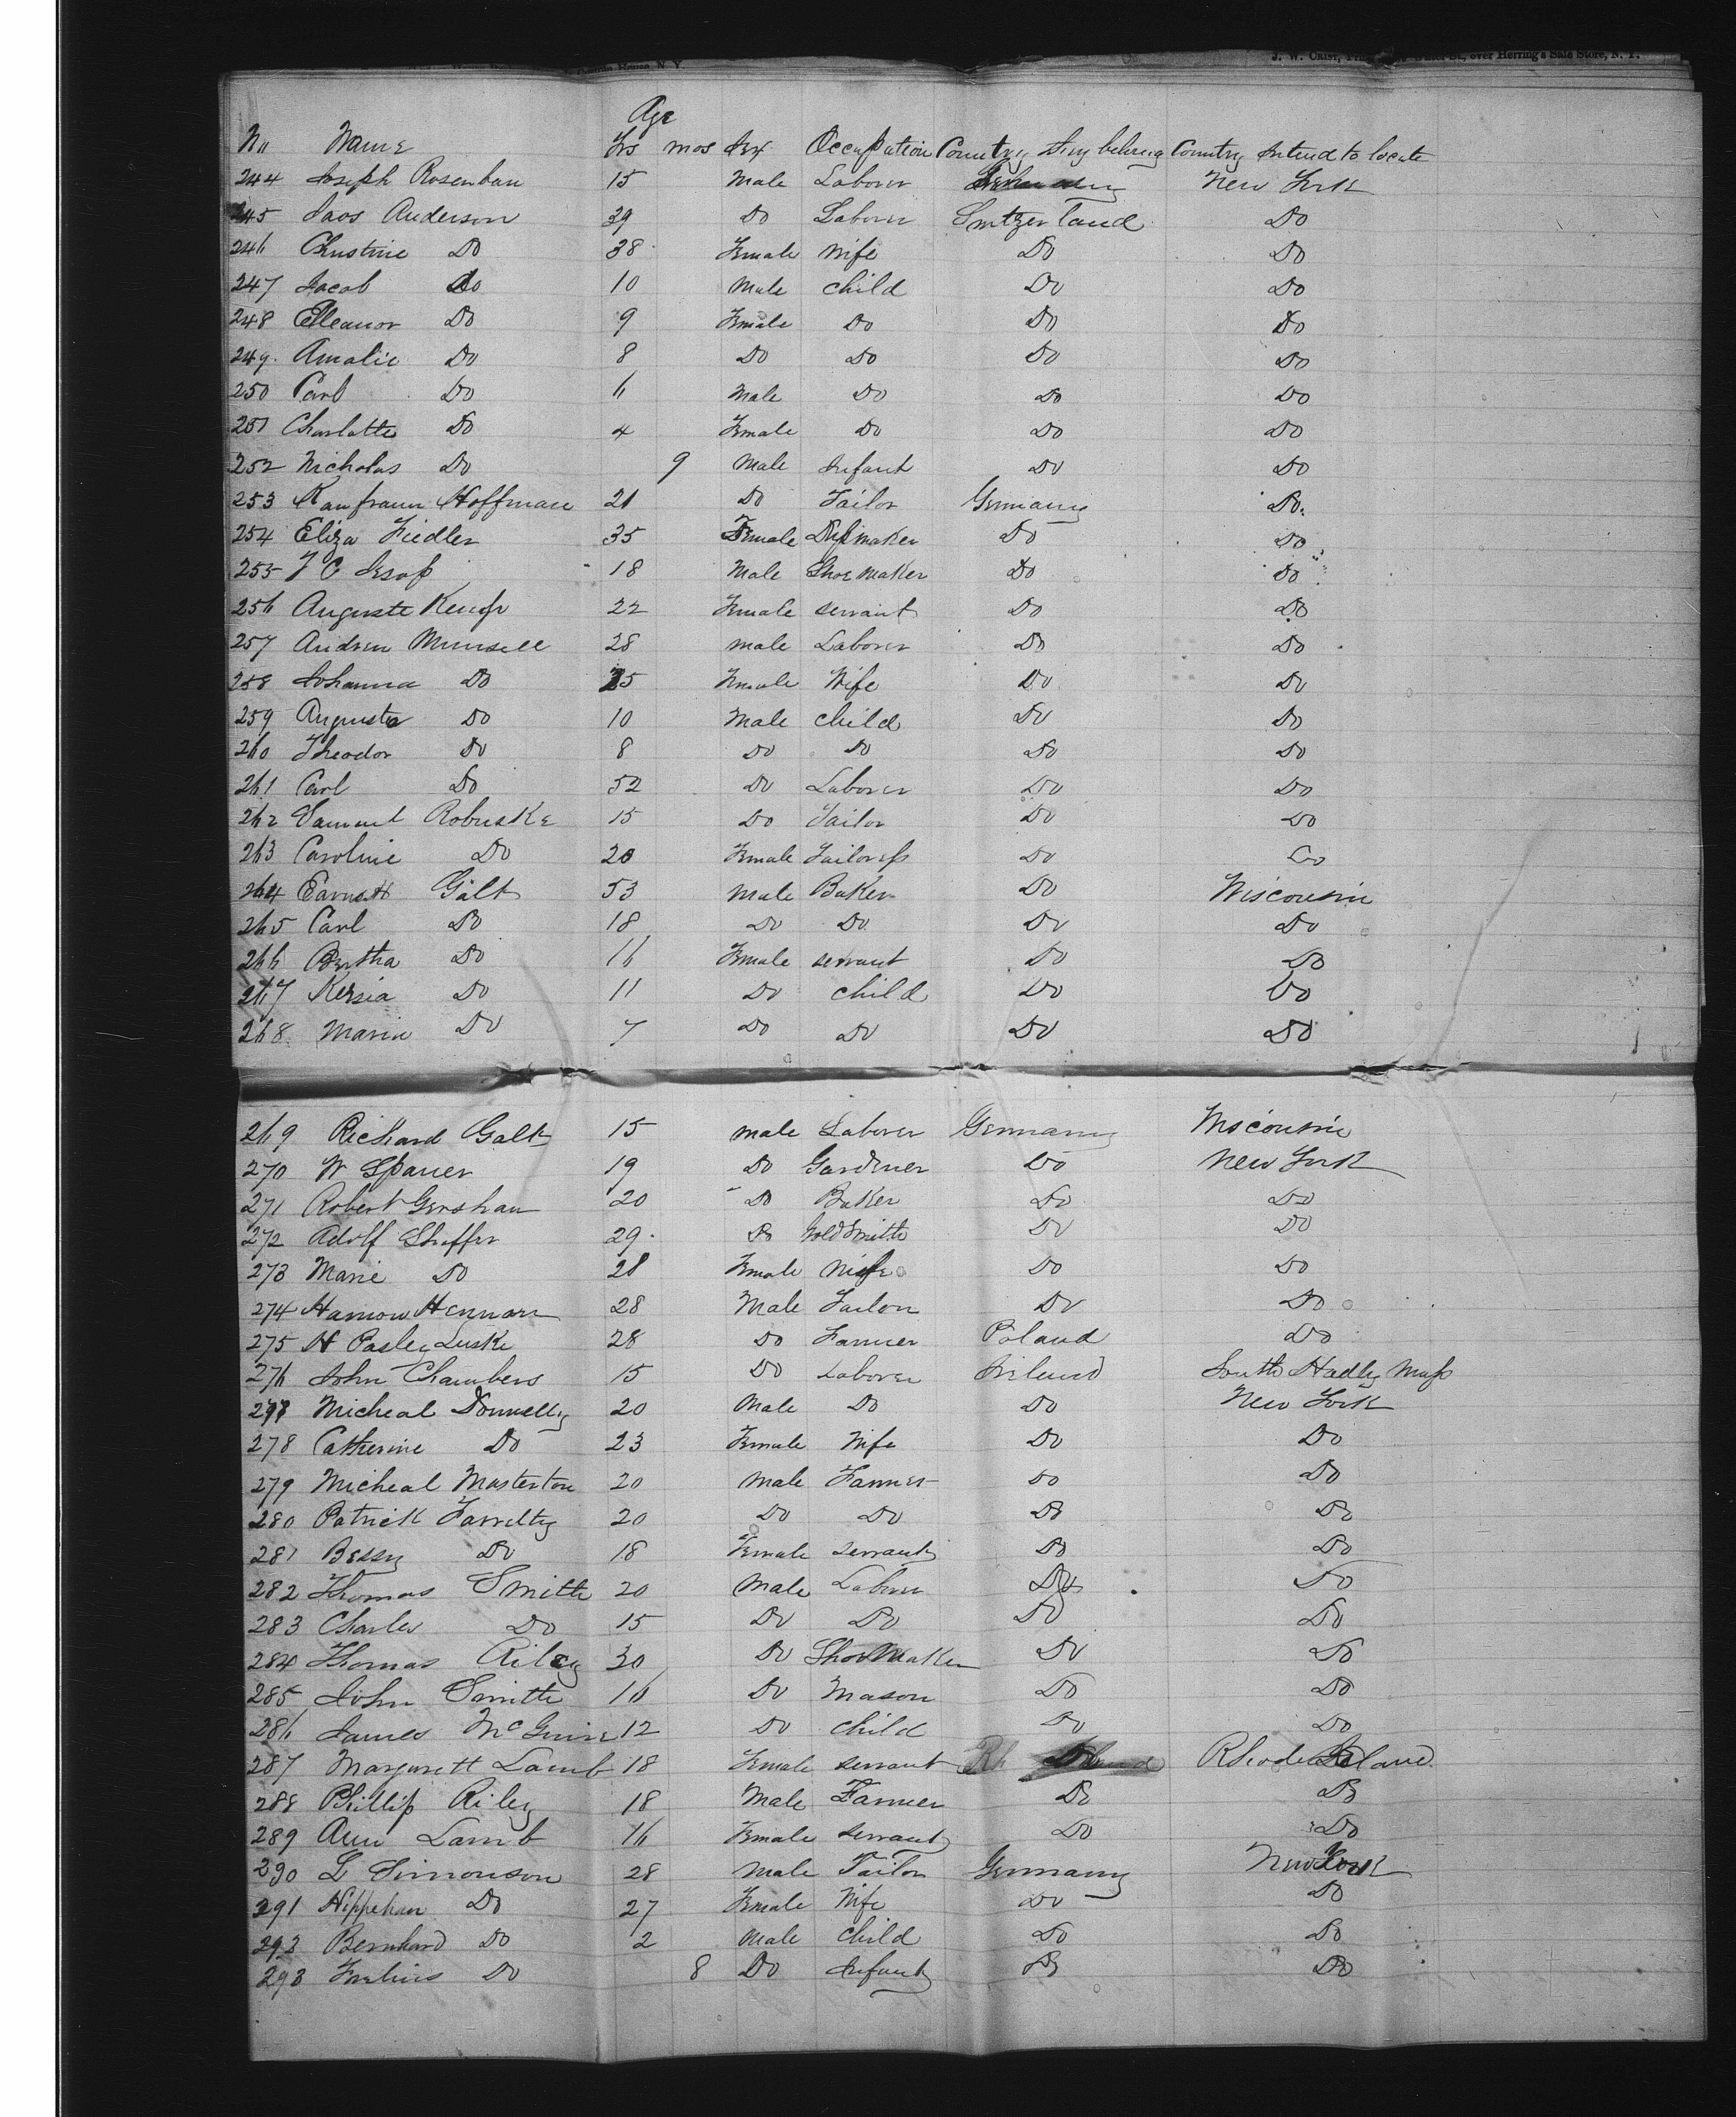 J. W. over Herring's Safe Store, N. Y.
House, N. Y.
Age
No Name Yrs mos Sex Occupation Country they belong Country intend to locate
244 Joseph Rosenbau 15 Male Laborer Germany New York
245 Anderson 39 Do Laborer Switzerland Do
246 Christine Do 38 Female Wife Do Do
247 Jacob Do 10 Male child Do Do
248 Elleanor Do 9 Female Do Do Do
249. Amalie Do 8 Do Do Do Do
250 Carl Do 6 Male Do Do Do
251 Charlotte Do 4 Female Do Do Do
252 Nicholas Do 9 Male Infant Do Do
253 Hoffman 21 Do Tailor Germany Do
254 Eliza Fiedler 35 Female Dressmaker Do Do
255 Jesop 18 Male Shoe maker Do Do
256 Auguste Kempf 22 Female servant Do Do
257 Andrew Munsell 28 male Laborer Do Do
258 Johanna Do 25 Female Wife Do Do
259 Auguste Do 10 Male child Do Do
260 Theodor Do 8 Do Do Do Do
261 Carl Do 52 Do Laborer Do Do
262 Samuel Robuske 15 Do Tailor Do Do
263 Caroline Do 20 Female Tailoress Do Do
264 Earnest Galt 53 Male Baker Do Wisconsin
265 Carl Do 18 Do Do Do Do
266 Bertha Do 16 Female servant Do Do
267 Kersia Do 11 Do child Do Do
268 Maria Do 7 Do Do Do Do
269 Richard Galt 15 male Laborer Germany Wisconsin
270 W Spauer 19 Do Gardener Do New York
271 Robert Gershan 20 Do Baker Do Do
272 Adolf Sheffer 29 Do Gold Smith Do Do
273 Marie Do 28 Female Wife Do Do
274 Hermon 28 Male Tailor Do Do
275 H Pasley Luske 28 Do Farmer Poland Do
276 John Chambers 15 Do Laborer Ireland South Hadley Mass
277 Micheal Donnelly 20 Male Do Do New York
278 Catherine Do 23 Female Wife Do Do
279 Micheal Masterton 20 male Farmer Do Do
280 Patrick Farrelly 20 Do Do Do Do
281 Bessy Do 18 Female servant Do Do
282 Thomas Smith 20 Male Laborer Do Do
283 Charles Do 15 Do Do Do Do
284 Thomas Riley 30 Do Shoe Maker Do Do
285 John Smith 16 Do Mason Do Do
286 James McGuire 12 Do child Do Do
287 Margarett Lamb 18 Female servant Do Rhode Island
288 Phillip Riley 18 Male Farmer Do Do
289 Ann Lamb 16 Female servant Do Do
290 L Simonson 28 Male Tailor Germany New York
291 Do 27 Female Wife Do Do
292 Bernhard Do 2 Male child Do Do
293 Do 8 Do Infant Do Do